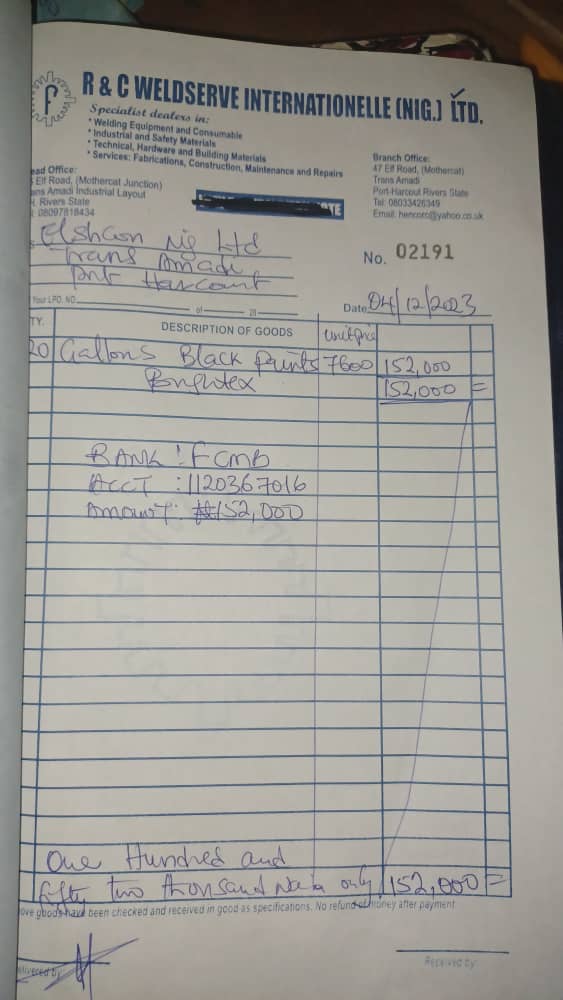 R & C WELDSERVE INTERNATIONELLE (NIG.) LTD.
Specialist dealers in:
* Welding Equipment and Consumable
* Industrial and Safety Materials
* Technical, Hardware and Building Materials
* Services: Fabrications, Construction, Maintenance and Repairs
ead Office:
Elf Road, (Mothercat Junction)
ans Amadi Industrial Layout
Rivers State
: 08097818434
Branch Office:
47 Elf Road, (Mothercat)
Trans Amadi
Port-Harcout Rivers State
Tel: 08033426349
Email: hencorc@yahoo.co.uk
Elshcon Nig Ltd
Trans Amadi
Port Harcourt
No. 02191
Your LPO. NO. of 20
Date 04/12/2023
TY. DESCRIPTION OF GOODS Unit price
20 Gallons Black paints 7600 152,000
Brightex 152,000 =
BANK : FCMB
ACCT : 1120367016
AMOUNT: ₦152,000
One Hundred and
fifty two thousand Naira only 152,000 =
ove goods have been checked and received in good as specifications. No refund of money after payment
elivered by:
Received by: